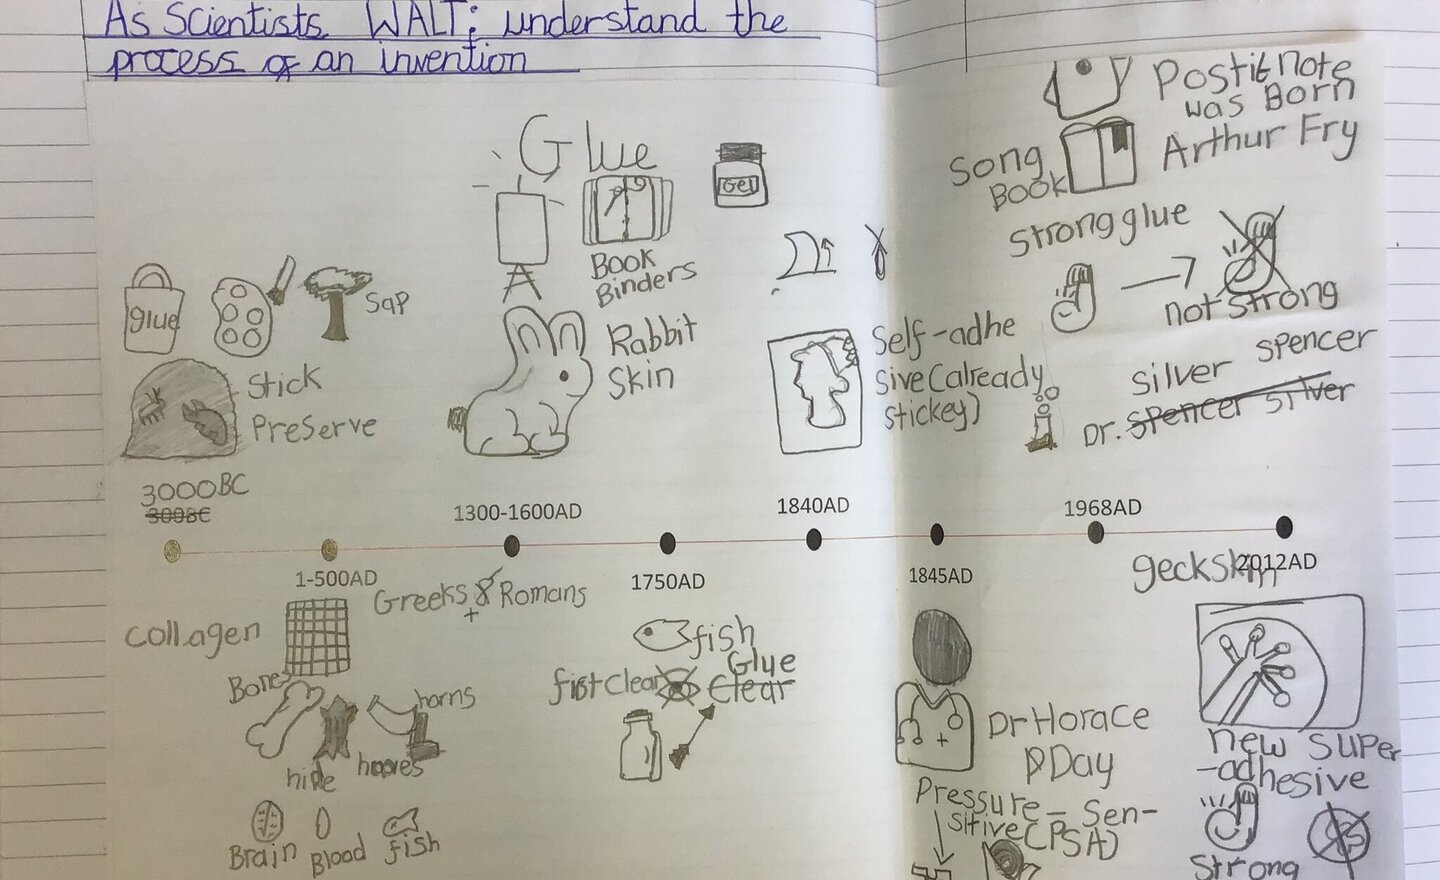 As Scientists WALT: understand the
process of an invention
Glue
Book
Binders
Gel
glue
Sap
Stick
Preserve
Rabbit
Skin
Self-adhe
sive (already
stickey)
Postit note
was Born
Arthur Fry
Song
Book
Strong glue
not strong
Silver Spencer
Dr. Spencer Silver
3000BC
300BC
1300-1600AD
1840AD
1968AD
1-500AD
1750AD
1845AD
2012AD
Greeks & Romans
+
collagen
Bones
horns
hide
hooves
Brain
Blood
fish
fish
Glue
fist clear
Clear
Dr Horace
Day
Pressure-Sen-
sitive (PSA)
geckskin
new super
-adhesive
Strong